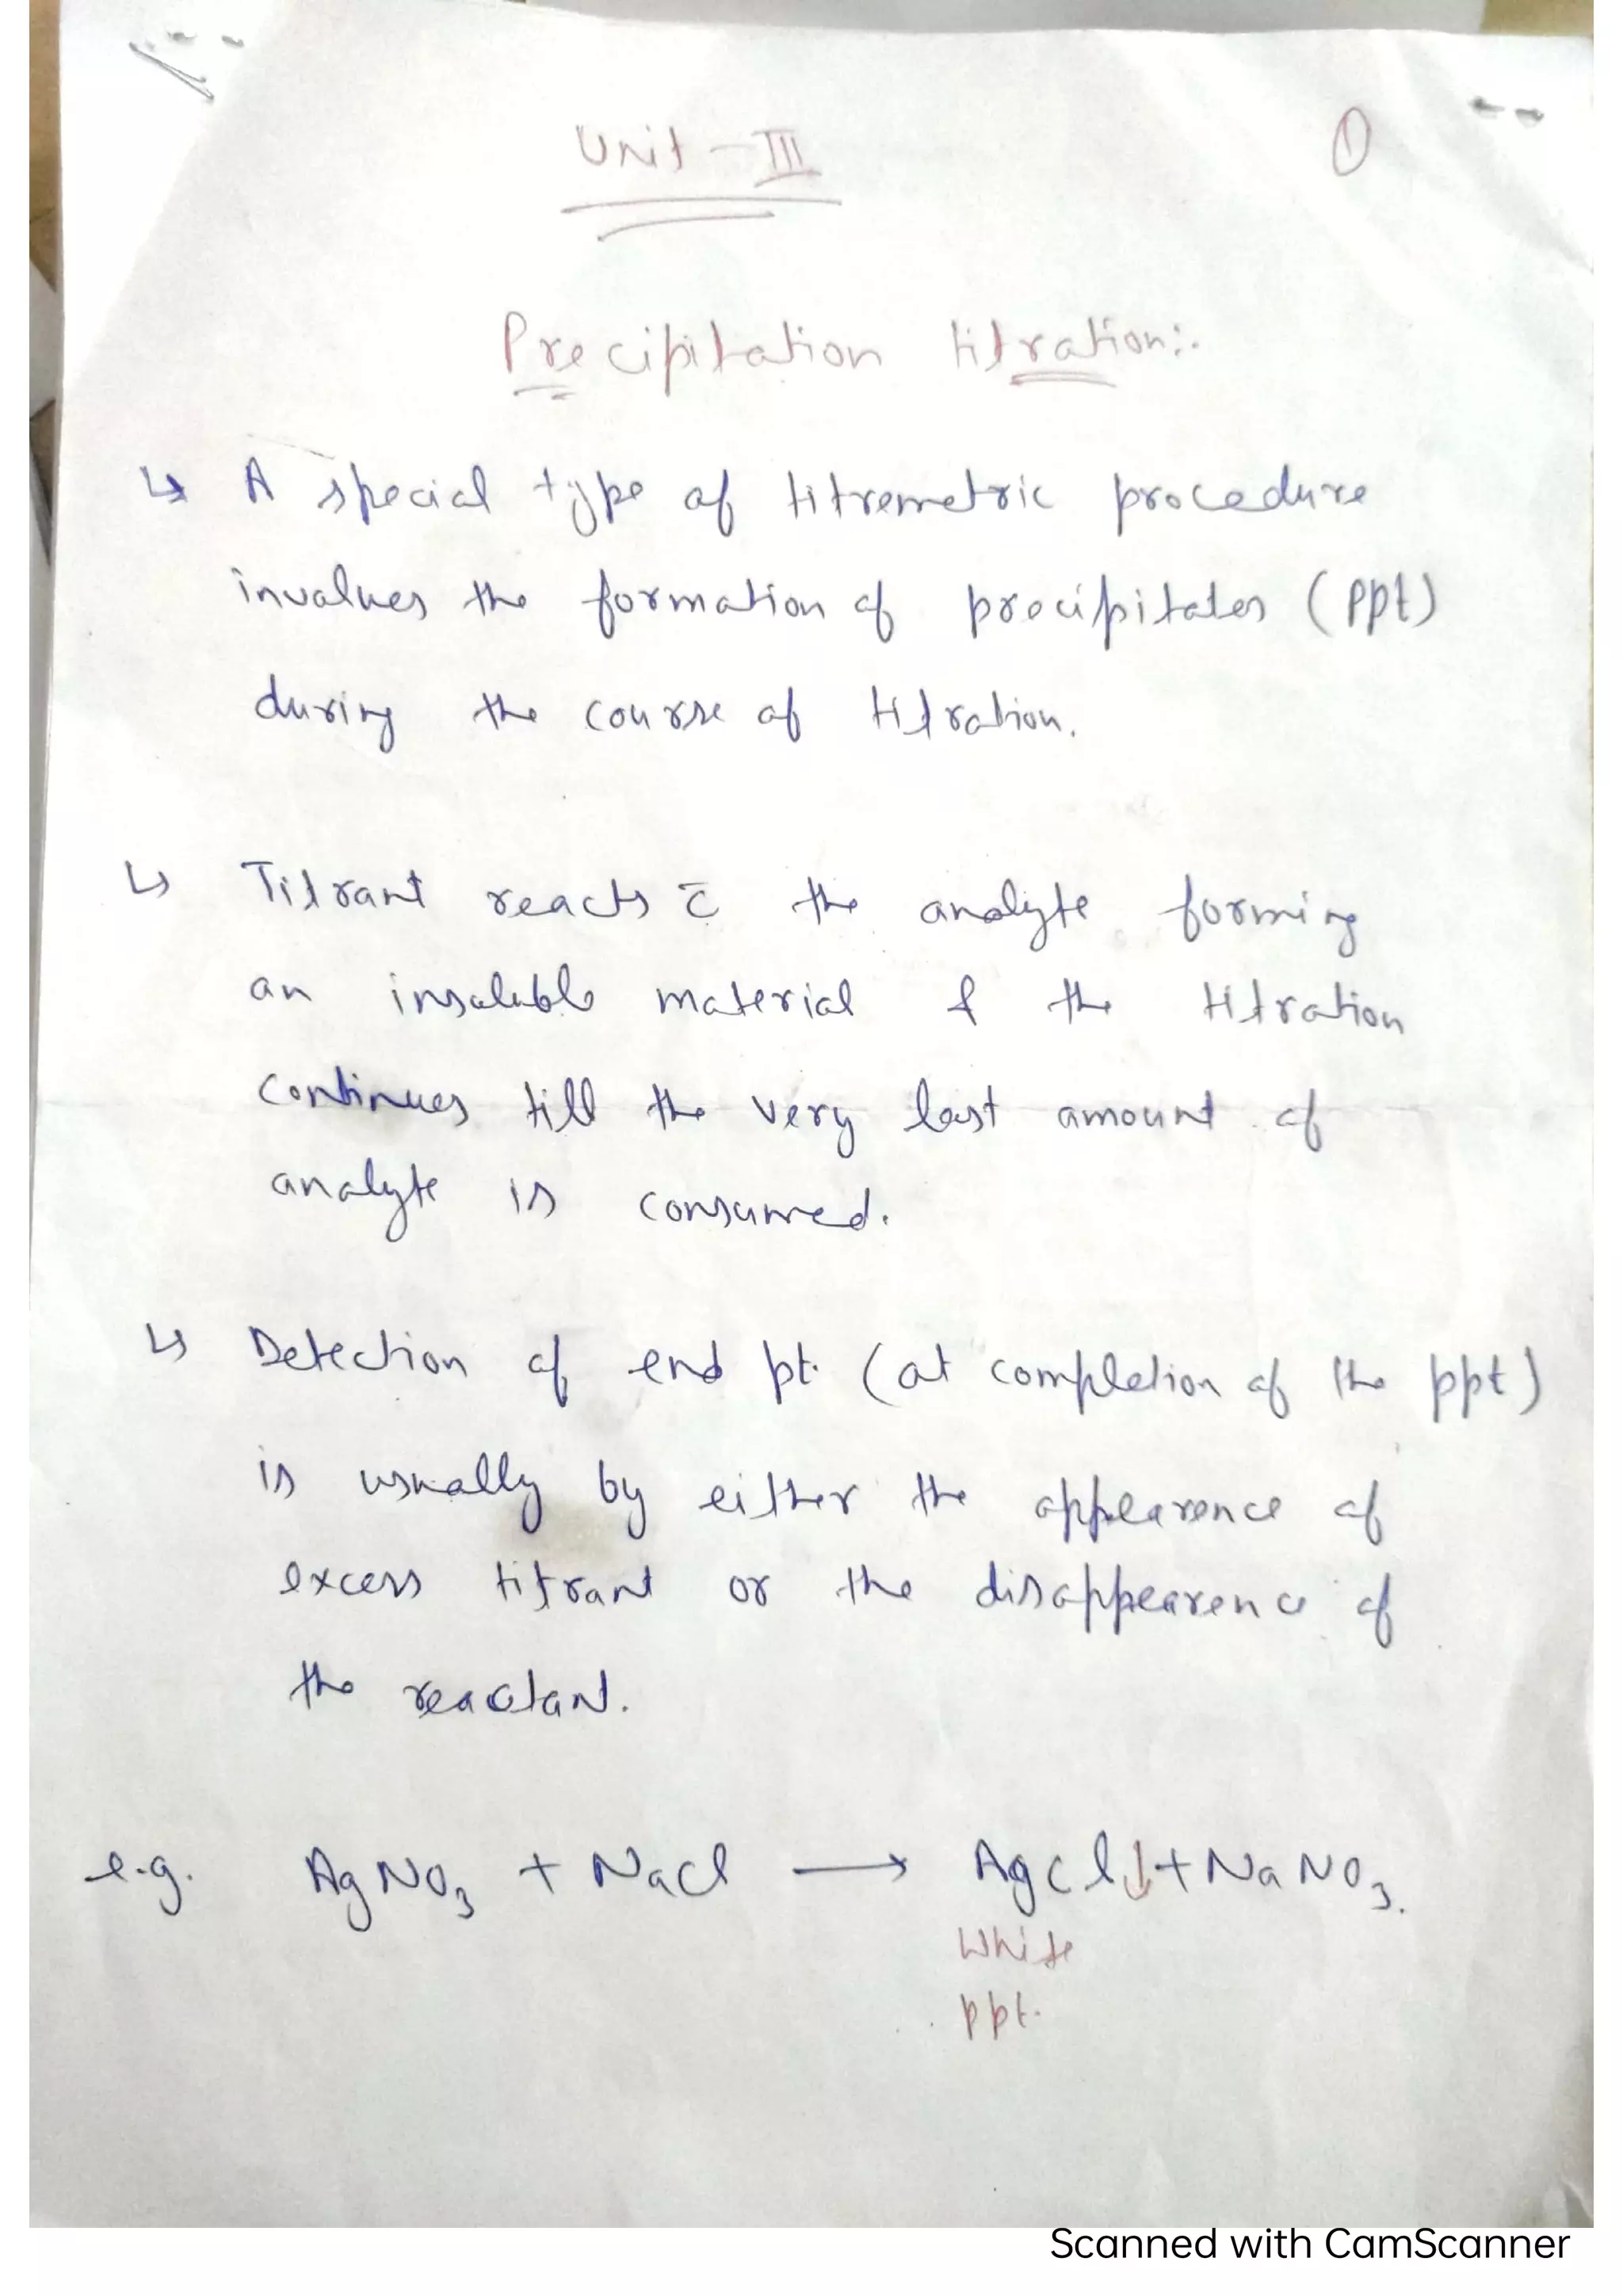 Unit - III
1
Precipitation titration:-
↳ A special type of titremetric procedure
involves the formation of precipitates (ppt)
during the course of titration.
↳ Titrant reacts c̄ the analyte forming
an insoluble material & the titration
continues till the very last amount of
analyte is consumed.
↳ Detection of end pt. (at completion of the ppt)
is usually by either the appearence of
excess titrant or the disappearence of
the reactant.
e.g. AgNO₃ + NaCl ⟶ AgCl↓ + NaNO₃.
White
ppt.
Scanned with CamScanner